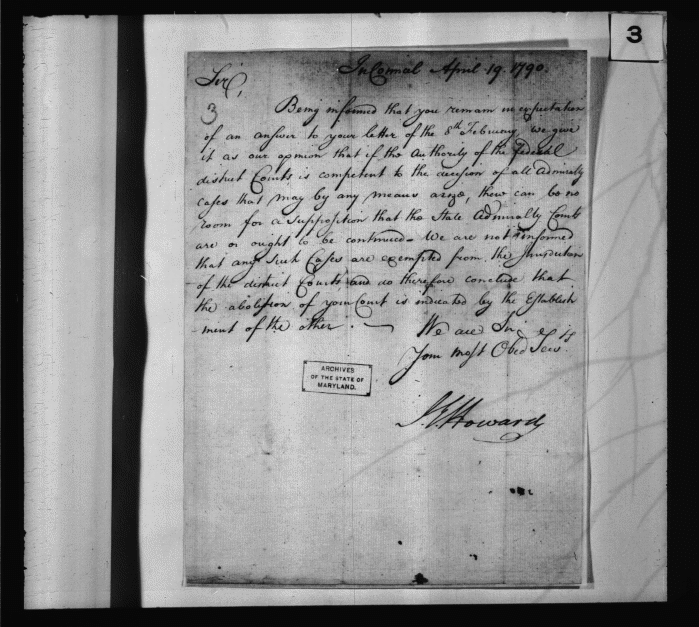 3
In Council April 19. 1790.
Sir,
3
Being informed that you remain in expectation
of an answer to your letter of the 8th February, we give
it as our opinion that if the Authority of the federal
district Courts is competent to the decision of all Admiralty
cases that may by any means arise, there can be no
room for a supposition that the State Admiralty Courts
are or ought to be continued. We are not informed
that any such Cases are exempted from the Jurisdiction
of the district Courts and do therefore conclude that
the abolition of your Court is indicated by the Establish
-ment of the other.
We are Sir
Your most Obed Servts
ARCHIVES
OF THE STATE OF
MARYLAND.
J. E. Howard